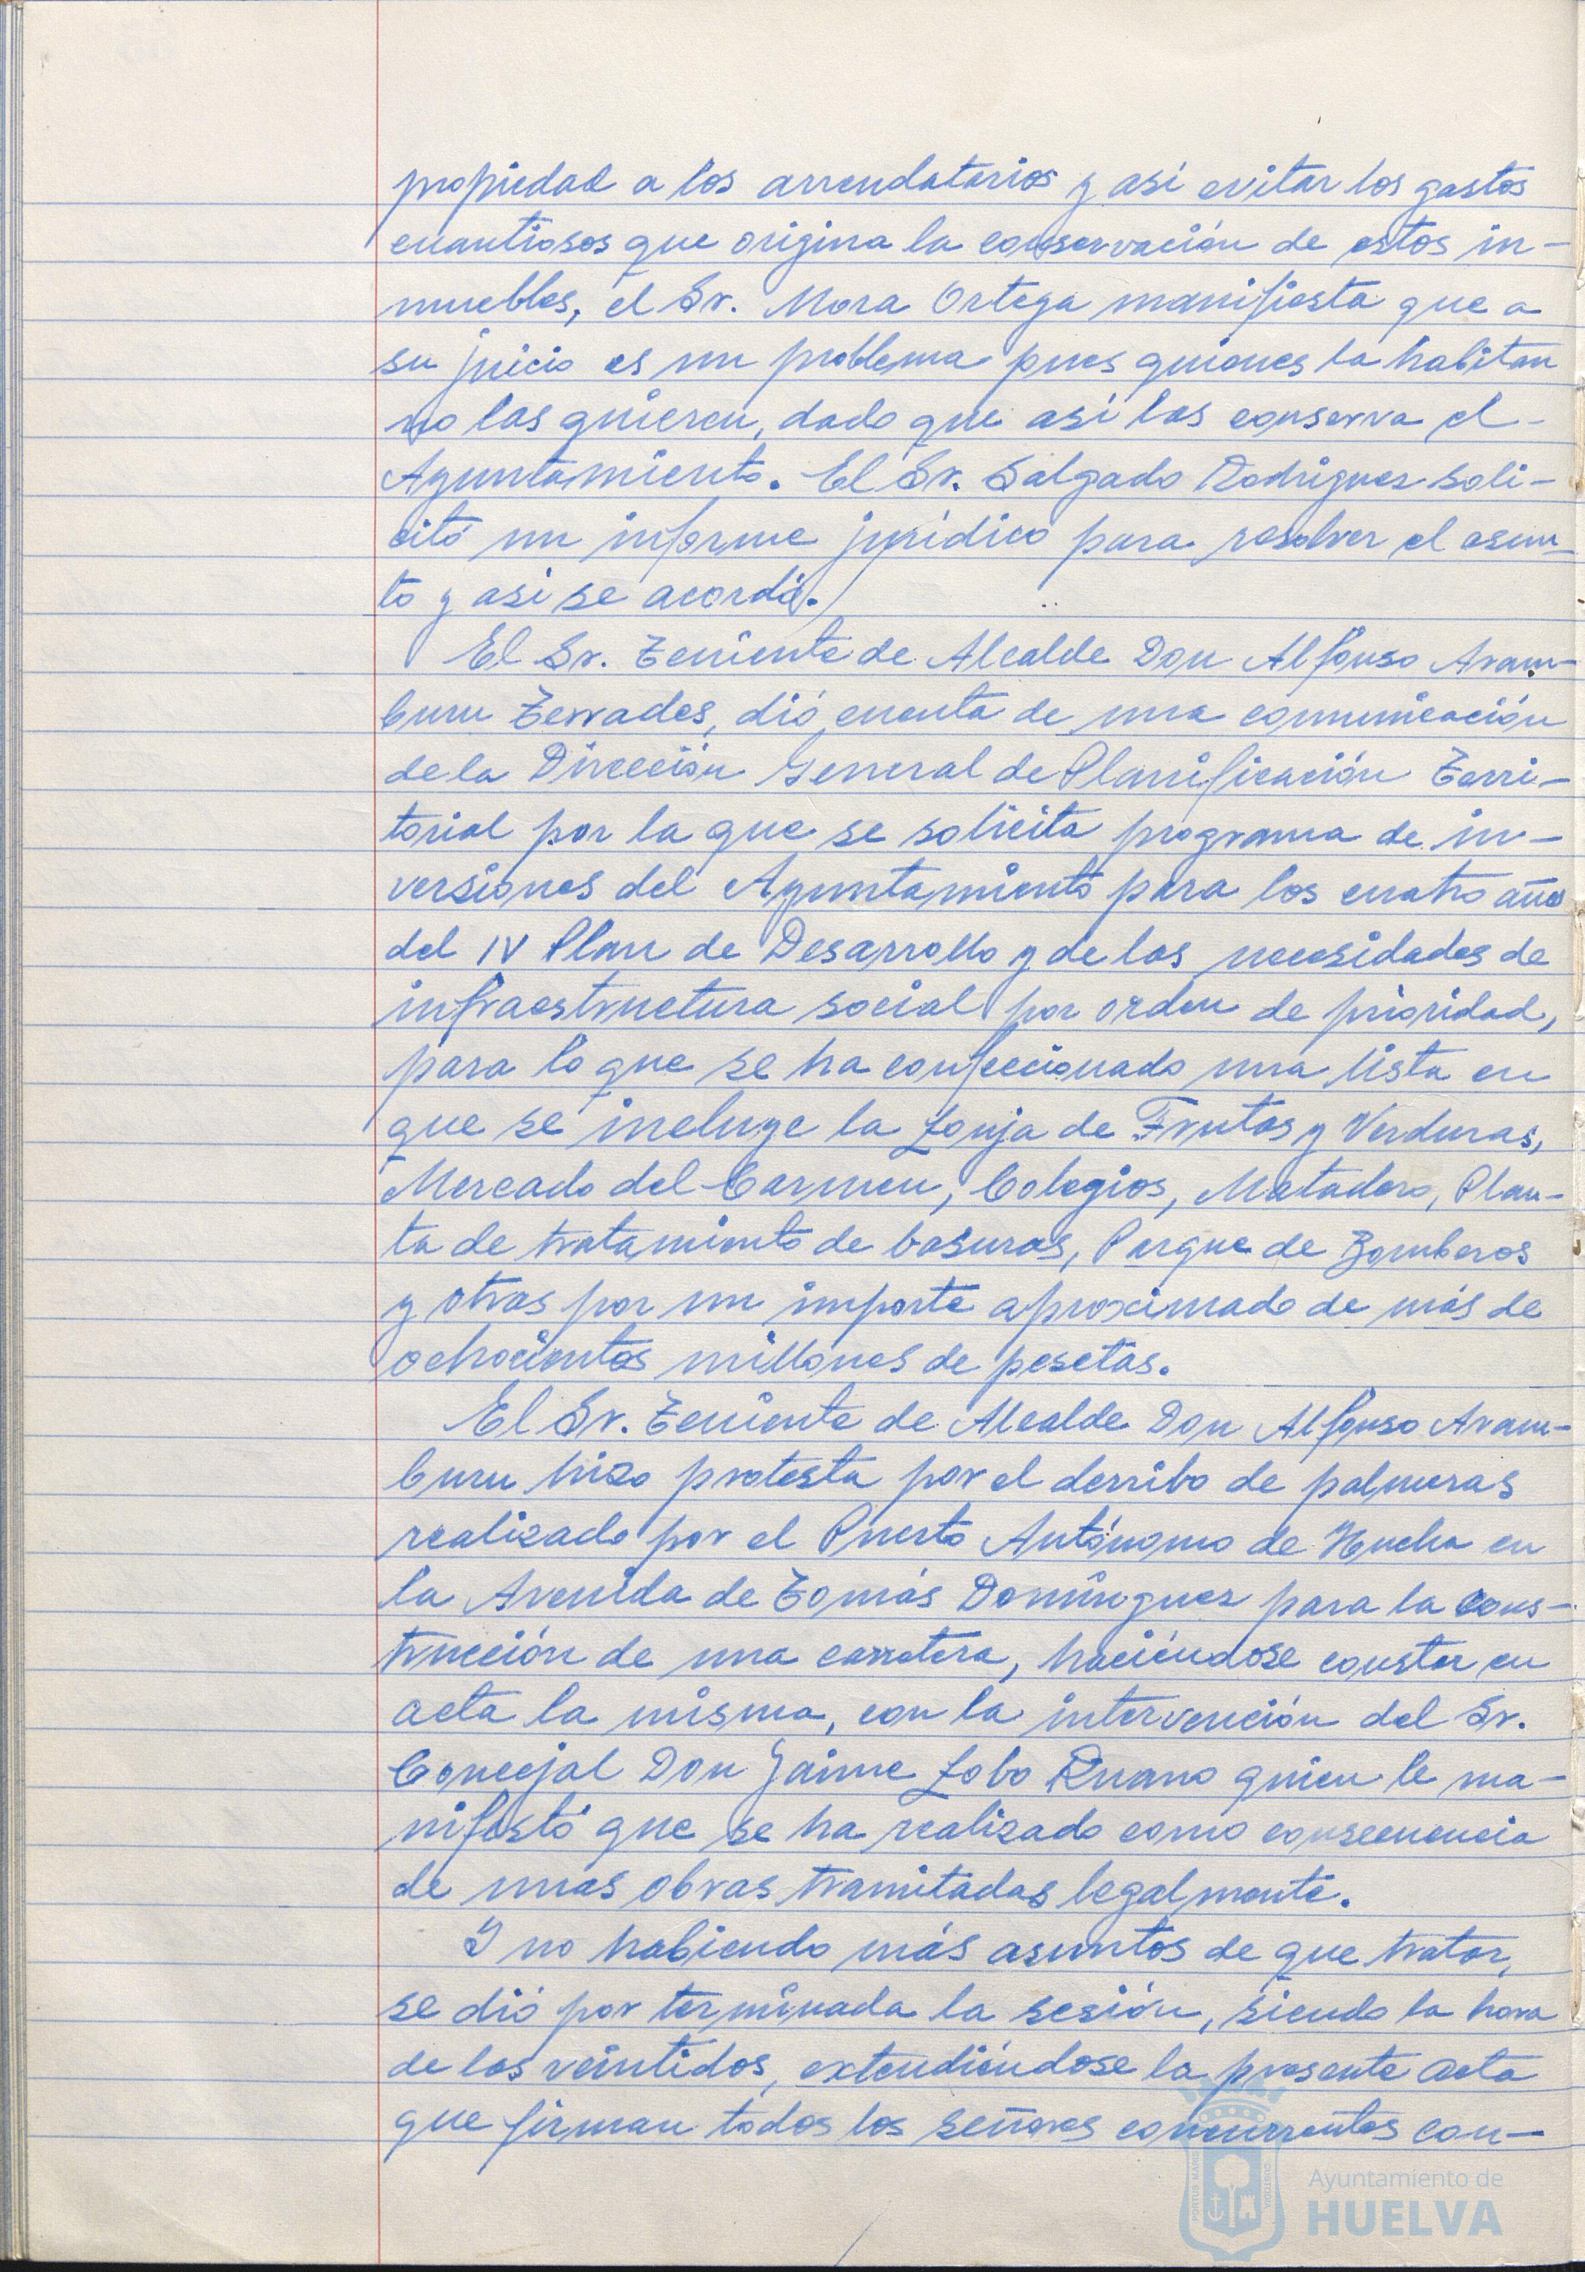 propiedad a los arrendatarios y así evitar los gastos
cuantiosos que origina la conservación de estos in-
muebles, el Sr. Mora Ortega manifiesta que a
su juicio es un problema pues quienes la habitan
no las quieren, dado que así las conserva el
Ayuntamiento. El Sr. Salgado Rodriguez soli-
citó un informe jurídico para resolver el asun-
to y así se acordó.
El Sr. Teniente de Alcalde Don Alfonso Aram-
buru Terrades, dió cuenta de una comunicación
de la Dirección General de Planificación Terri-
torial por la que se solicita programa de in-
versiones del Ayuntamiento para los cuatro años
del IV Plan de Desarrollo y de las necesidades de
infraestructura social por orden de prioridad,
para lo que se ha confeccionado una lista en
que se incluye la Lonja de Frutas y Verduras,
Mercado del Carmen, Colegios, Matadero, Plan-
ta de tratamiento de basuras, Parque de Bomberos
y otras por un importe aproximado de más de
ochocientos millones de pesetas.
El Sr. Teniente de Alcalde Don Alfonso Aram-
buru hizo protesta por el derribo de palmeras
realizado por el Puerto Autónomo de Huelva en
la Avenida de Tomás Domínguez para la cons-
trucción de una carretera, haciéndose constar en
acta la misma, con la intervención del Sr.
Concejal Don Jaime Lobo Ruano quien le ma-
nifestó que se ha realizado como consecuencia
de unas obras tramitadas legalmente.
Y no habiendo más asuntos de que tratar,
se dió por terminada la sesión, siendo la hora
de las veintidos, extendiéndose la presente acta
que firman todos los señores concurrentes con-
Ayuntamiento de
HUELVA